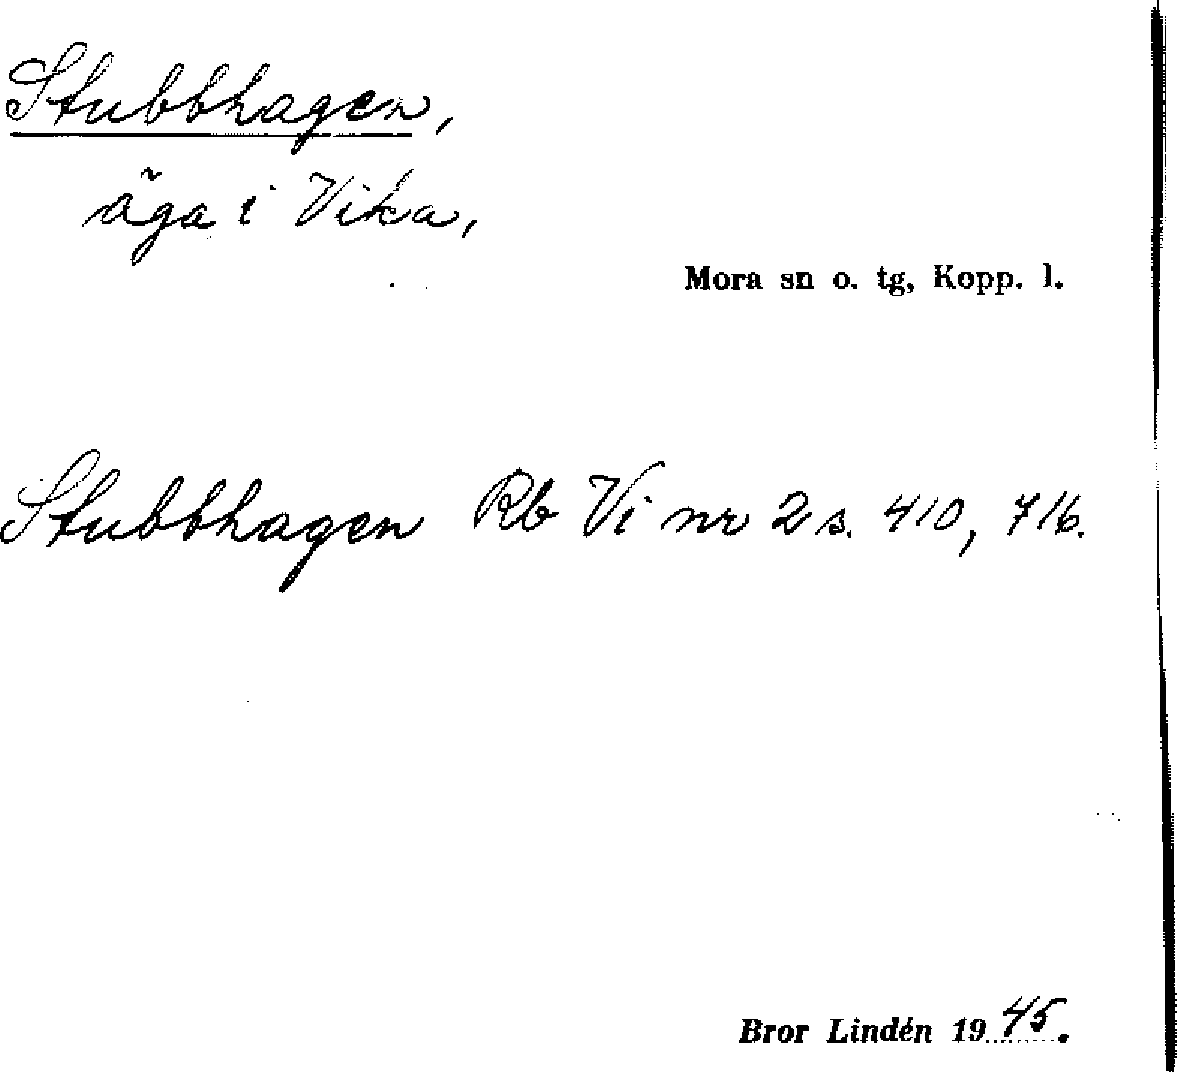 Stubbhagen,
äga i Vika,
Mora sn o. tg, Kopp. l.
Stubbhagen Rb Vi nr 2 s. 410, 716.
Bror Lindén 1945.